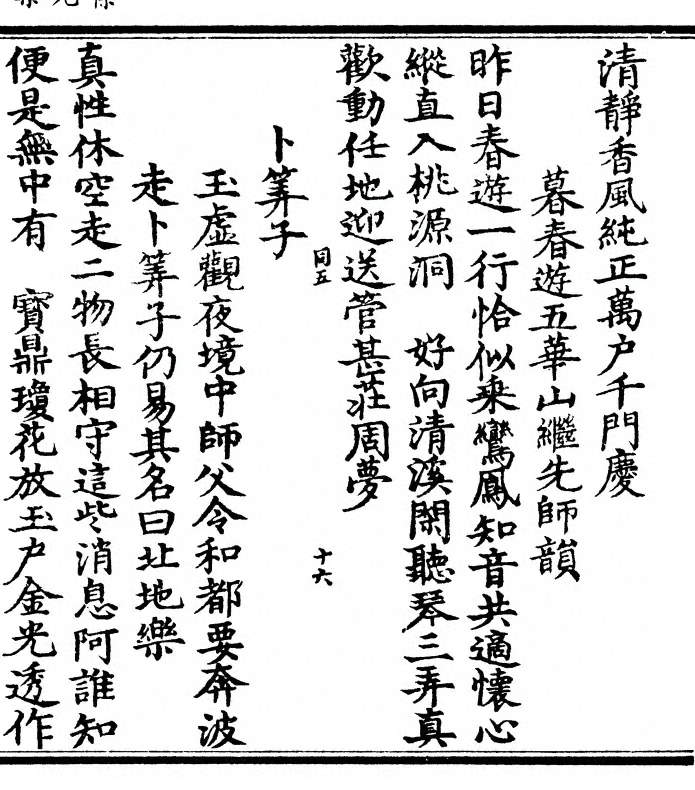 清靜香風純正萬户千門慶
暮春遊五華山繼先師韻
昨日春遊一行恰似乘鸞鳳知音共適懷心
縱直入桃源洞　好向清溪閑聽琴三弄真
歡動任地迎送管甚莊周夢
同五　十六
卜筭子
玉虛觀夜境中師父令和都要奔波
走卜筭子仍易其名曰北地樂
真性休空走二物長相守這些消息阿誰知
便是無中有　寶鼎瓊花放玉户金光透作